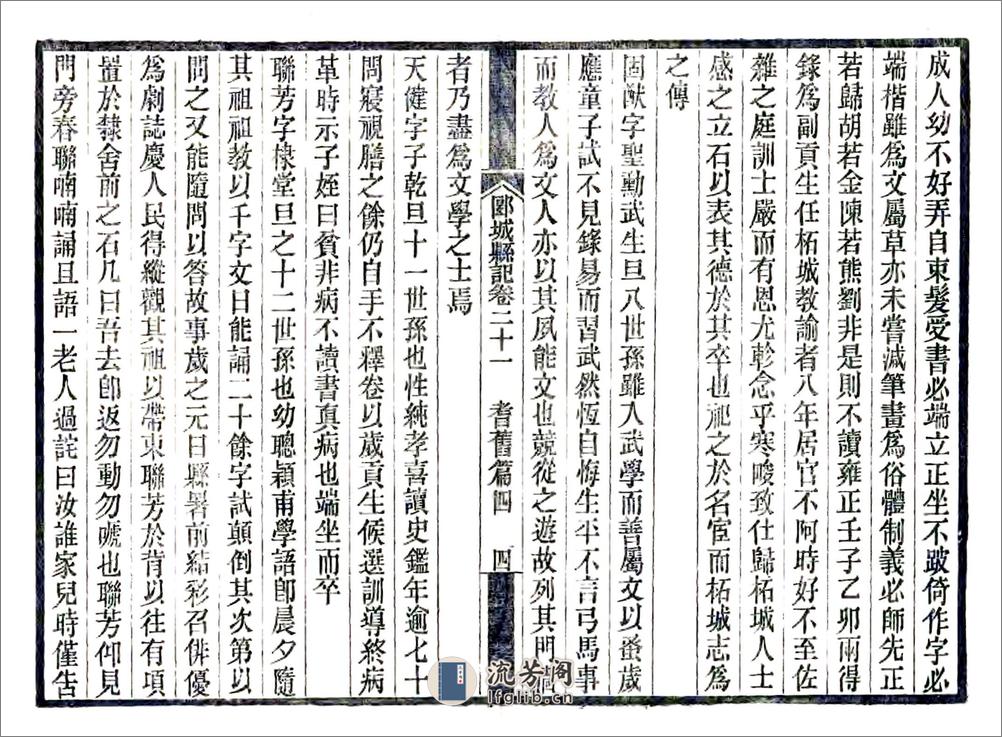 成人幼不好弄自束髮受書必端立正坐不跛倚作字必
端楷雖爲文屬草亦未嘗減筆畫爲俗體制義必師先正
若歸胡若金陳若熊劉非是則不讀雍正壬子乙卯兩得
錄爲副貢生任柘城教諭者八年居官不阿時好不至佐
雜之庭訓士嚴而有恩尤軫念乎寒畯致仕歸柘城人士
感之立石以表其德於其卒也祀之於名宦而柘城志爲
之傳
固猷字聖勳武生旦八世孫雖入武學而善屬文以蚤歲
應童子試不見錄易而習武然恆自悔生平不言弓馬事
而教人爲文人亦以其夙能文也競從之遊故列其門
者乃盡爲文學之士焉
郾城縣記卷二十一 耆舊篇四 四
天健字子乾旦十一世孫也性純孝喜讀史鑑年逾七十
問寢視膳之餘仍自手不釋卷以歲貢生候選訓導終病
革時示子姪曰貧非病不讀書真病也端坐而卒
聯芳字棣堂旦之十二世孫也幼聰穎甫學語卽晨夕隨
其祖祖教以千字文日能誦二十餘字試顛倒其次第以
問之又能隨問以答故事歲之元日縣署前結彩召俳優
爲劇誌慶人民得縱觀其祖以帶束聯芳於背以往有項
置於隸舍前之石几曰吾去卽返勿動勿唬也聯芳仰見
門旁春聯喃喃誦且語一老人過詫曰汝誰家兒時僅告
流芳閣
lfglib.cn